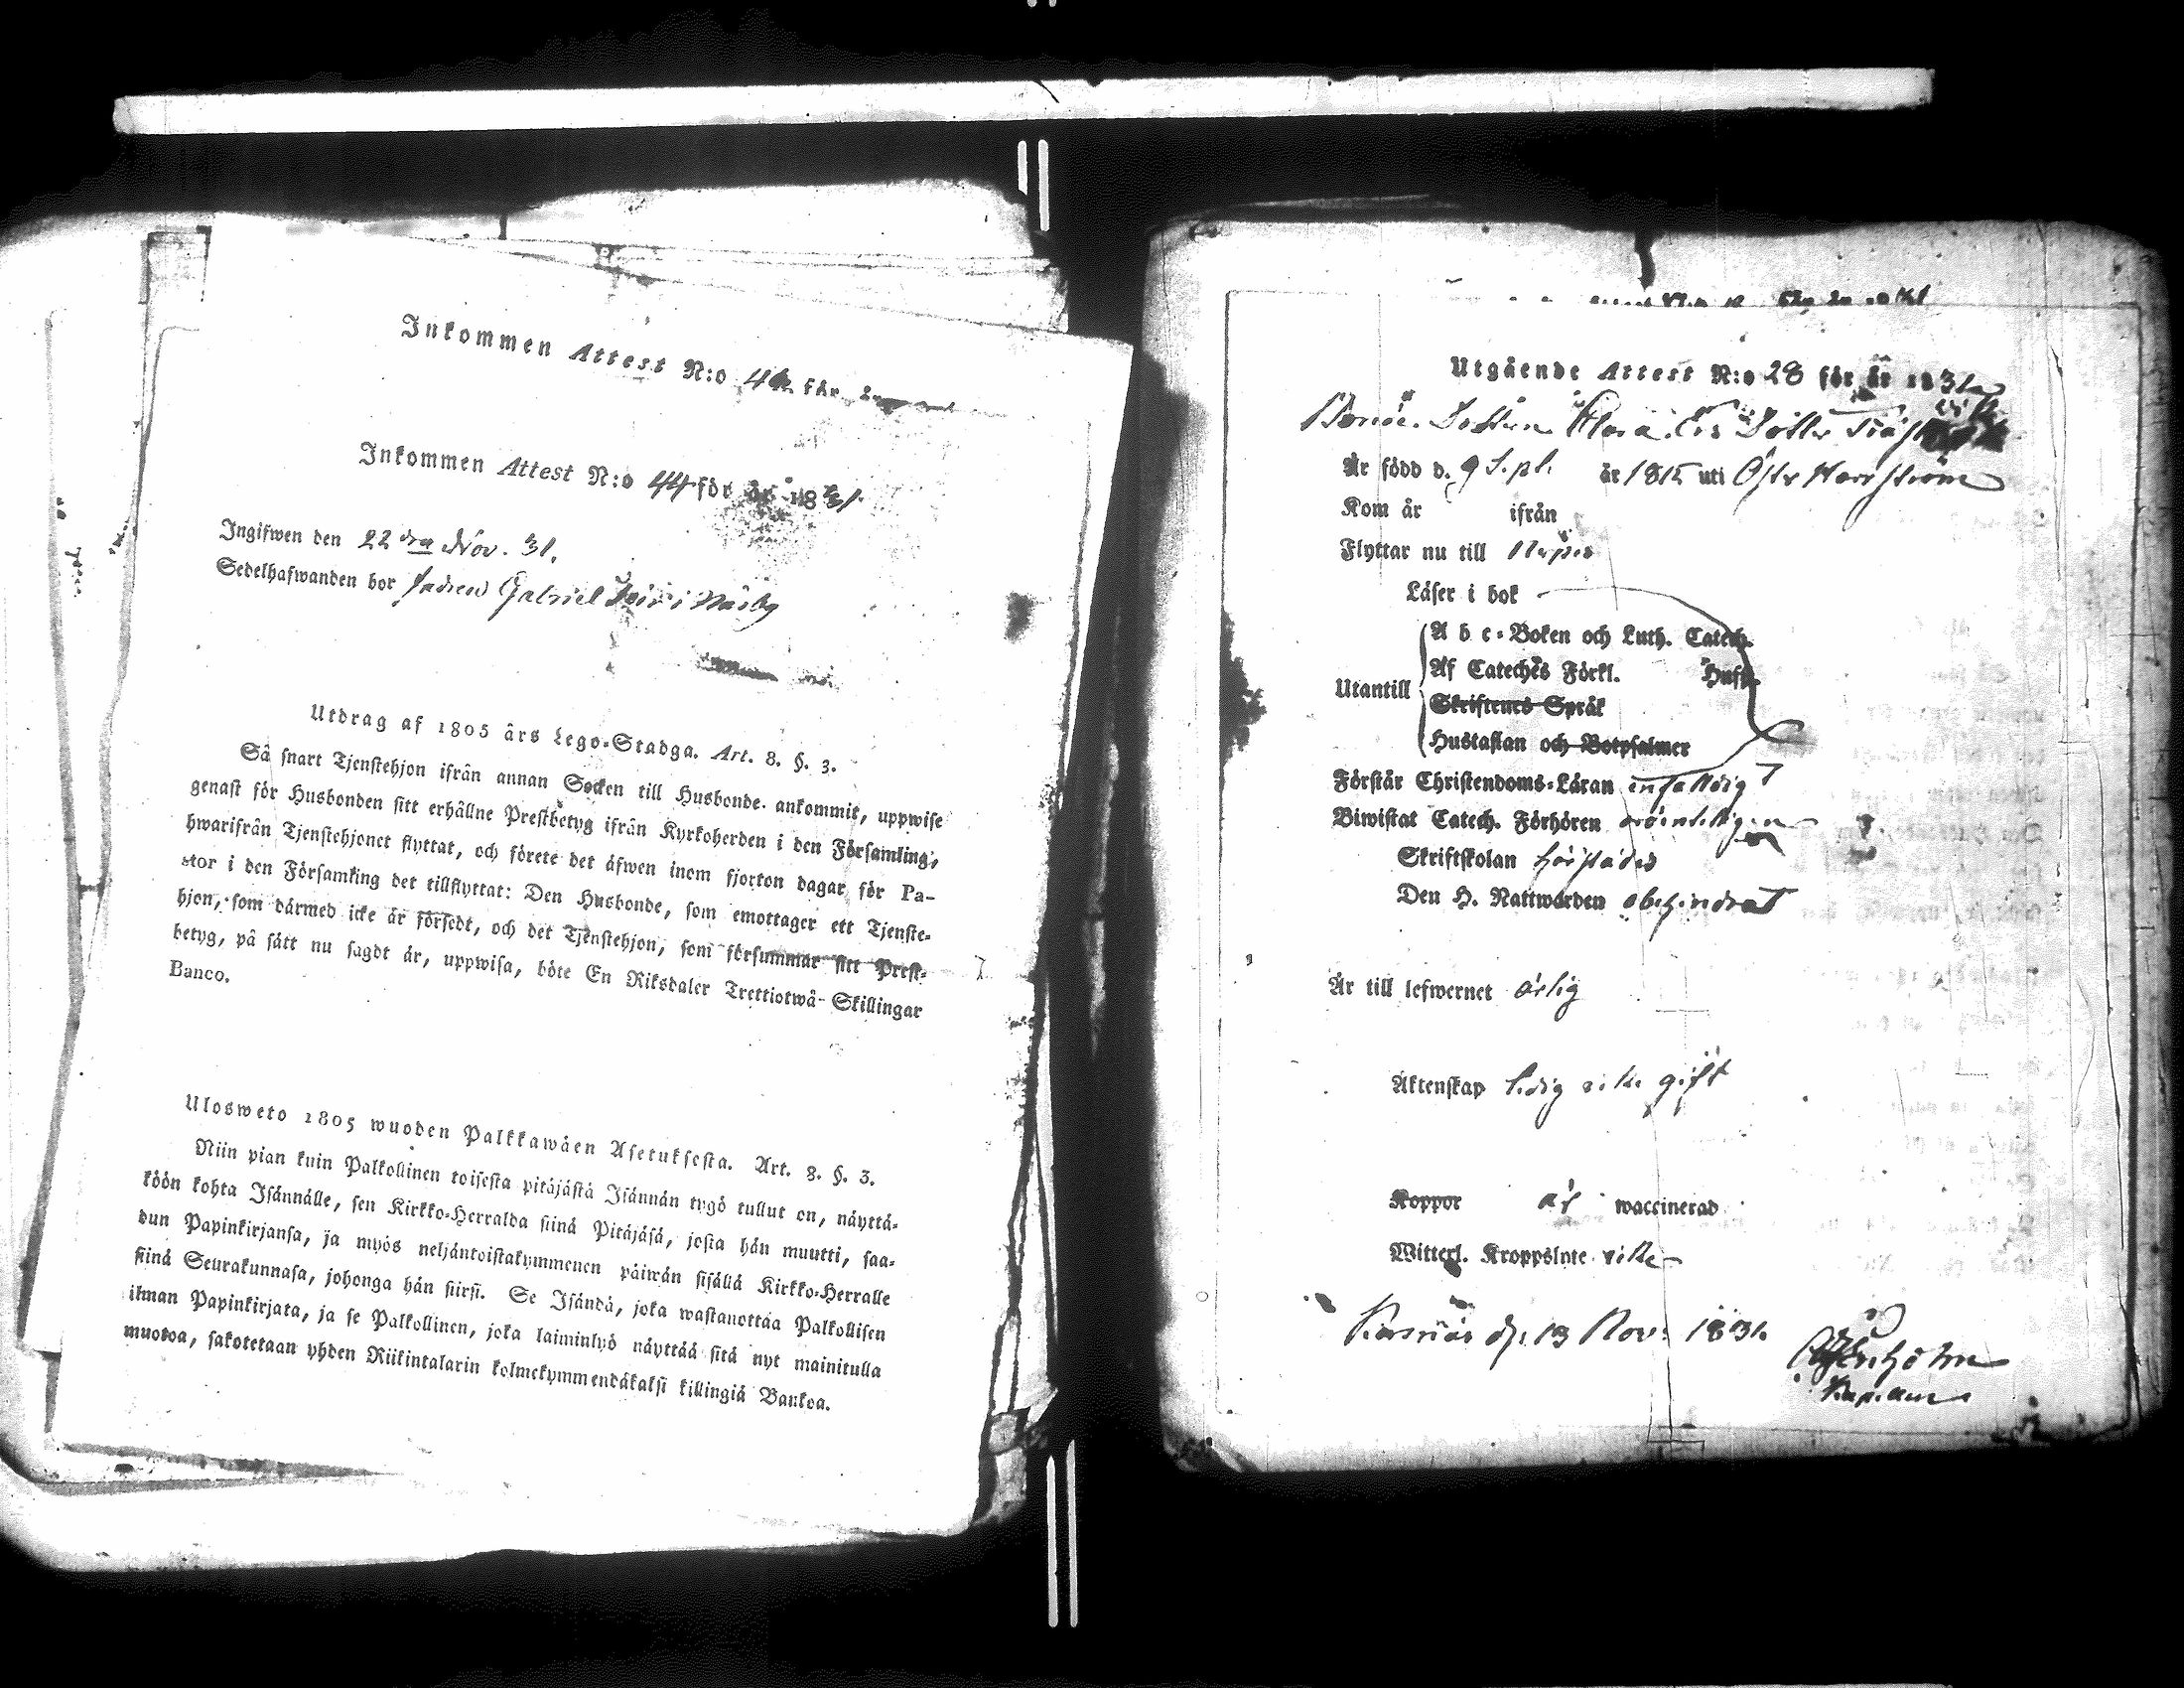 Inkommen Attest N:o för
Inkommen Attest N:o 44 för år 1831
Ingifwen den 22 dra Nov. 31.
Sedelhafwanden bor Gabriel i
Utdrag af 1805 års Lego-Stadga. Art. 8. §. 3.
Så snart Tjenstehjon ifrån annan Socken till Husbonde ankommit, uppwise
genast för Husbonden sitt erhållne Prestbetyg ifrån Kyrkoherden i den Församling,
hwarifrån Tjenstehjonet flyttat, och förete det äfwen inom fjorton dagar för Pa-
stor i den Församling det tillflyttat: Den Husbonde, som emottager ett Tjenste-
hjon, som därmed icke är försedt, och det Tjenstehjon, som försummar sitt Prest-
betyg, på sätt nu sagdt är, uppwisa, böte En Riksdaler Trettiotwå Skillingar
Banco.
Ulosweto 1805 wuoden Palkkawäen Asetuksesta. Art. 8. §. 3.
Niin pian kuin Palkollinen toisesta pitäjästä Isännän tygö tullut on, näyttä-
köön kohta Isännälle, sen Kirkko-Herralda siinä Pitäjäsä, josta hän muutti, saa-
dun Papinkirjansa, ja myös neljäntoistakymmenen päiwän sisällä Kirkko-Herralle
siinä Seurakunnasa, johonga hän siirsi. Se Isändä, joka wastanottaa Palkollisen
ilman Papinkirjata, ja se Palkollinen, joka laiminlyö näyttää sitä nyt mainitulla
muotoa, sakotetaan yhden Riikintalarin kolmekymmendäkaksi killingiä Bankoa.
Utgående Attest N:o 28 för år 1831
Bonde Dottren Dotter
Är född d. 9 Sept. år 1815 uti Öster
Kom år ifrån
Flyttar nu till
Läser i bok
Utantill
A b c-Boken och Luth. Catech.
Af Cateches Förkl. Hust.
Skriftenes Språk
Hustaflan och Botpsalmer
Förstår Christendoms-Läran enfaldigt
Biwistat Catech. Förhören ordenteligen
Skriftskolan
Den H. Nattwarden obehindrat
Är till lefwernet ärlig
Äktenskap ledig gift
Koppor är waccinerad
Witterl. Kroppslyte
d. 13 Nov. 1831.